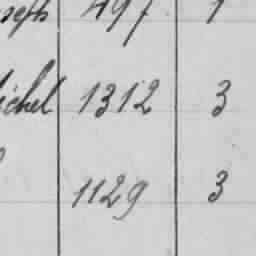 seph 497 1
ichel 1312 3
1129 3